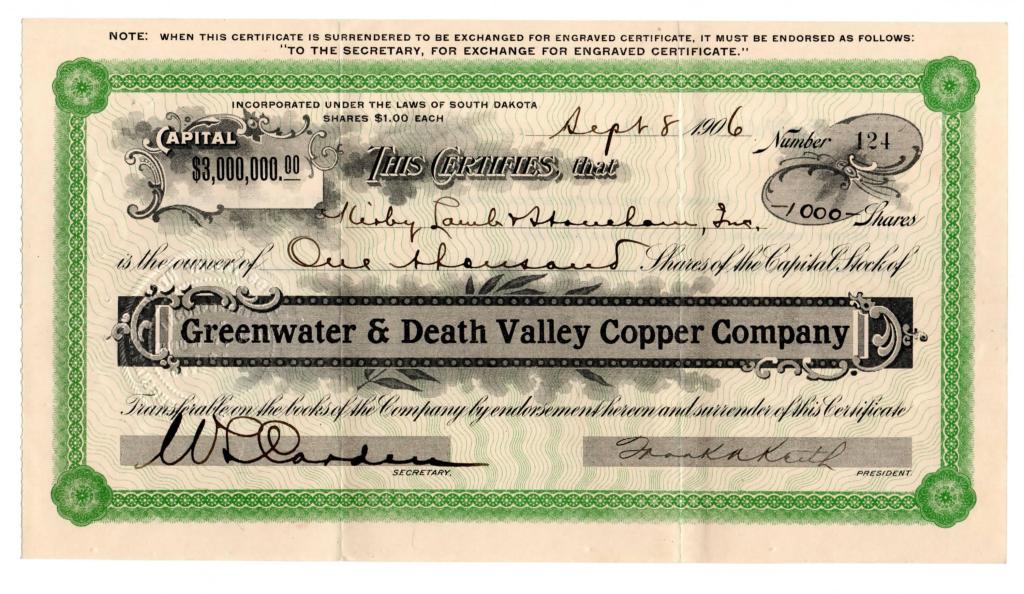 NOTE: WHEN THIS CERTIFICATE IS SURRENDERED TO BE EXCHANGED FOR ENGRAVED CERTIFICATE, IT MUST BE ENDORSED AS FOLLOWS:
"TO THE SECRETARY, FOR EXCHANGE FOR ENGRAVED CERTIFICATE."
INCORPORATED UNDER THE LAWS OF SOUTH DAKOTA
SHARES $1.00 EACH
Sept 8 1906
CAPITAL
$3,000,000.00
Number 124
THIS CERTIFIES, that
-1000- Shares
Kirby Lamb & Stoneham, Inc.
is the owner of One thousand Shares of the Capital Stock of
Greenwater & Death Valley Copper Company
Transferable on the books of the Company by endorsement hereon and surrender of this Certificate
Frank A Keith
SECRETARY.
PRESIDENT.